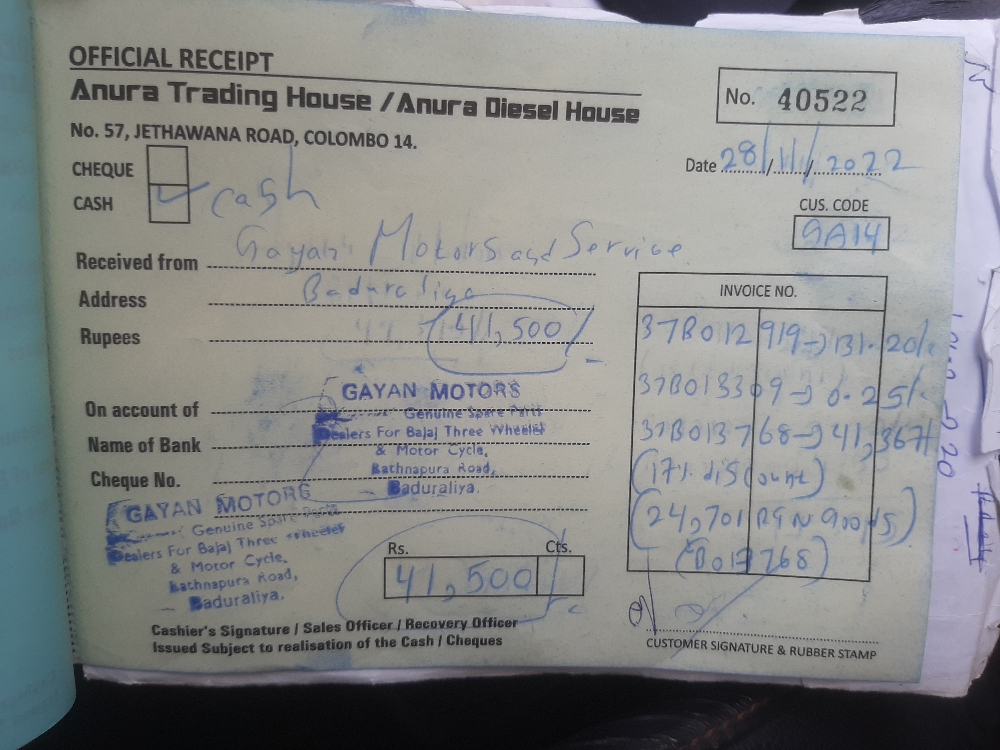 OFFICIAL RECEIPT
Anura Trading House / Anura Diesel House
No. 57, JETHAWANA ROAD, COLOMBO 14.
No. 40522
Date 28/11/2022
CHEQUE
CASH cash
CUS. CODE
9A14
Received from Gayan Motors and Service
Address Baduraliya
Rupees 41,500/-
On account of
Name of Bank
Cheque No.
INVOICE NO.
37B012919→131.20/-
37B013309→0.25/-
37B013768→41,367/-
(17% discount)
(24,701 RGN goods)
(B013768)
GAYAN MOTORS
Genuine Spare Parts
Dealers For Bajaj Three Wheeler
& Motor Cycle,
Rathnapura Road,
Baduraliya.
GAYAN MOTORS
Genuine Spare Parts
Dealers For Bajaj Three Wheeler
& Motor Cycle,
Rathnapura Road,
Baduraliya.
Rs. Cts.
41,500
Cashier's Signature / Sales Officer / Recovery Officer
Issued Subject to realisation of the Cash / Cheques
CUSTOMER SIGNATURE & RUBBER STAMP